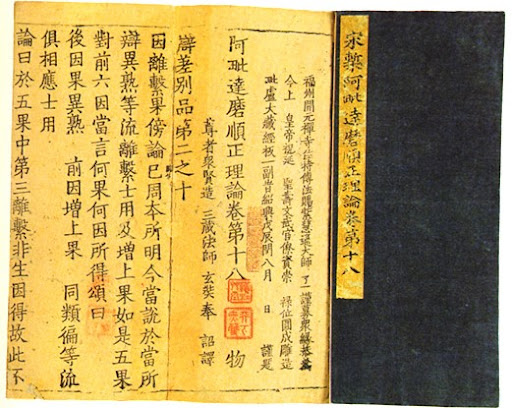 宋槧阿毗達磨順正理論卷第十八
福州開元禪寺住持傳法賜紫慧通大師 了一 謹募眾緣恭為
今上 皇帝祝延 聖壽文武官僚資崇 祿位圓成雕造
毗盧大藏經板一副旹紹興戊辰閏八月 日 謹題
阿毗達磨順正理論卷第十八 物
尊者眾賢造 三藏法師玄奘奉 詔譯
辯差別品第二之十
因離繫果傍論已周本所明今當說於當所
辯異熟等流離繫士用及增上果如是五果
對前六因當言何果何因所得頌曰
後因果異熟 前因增上果 同類徧等流
俱相應士用
論曰於五果中第三離繫非生因得故此不